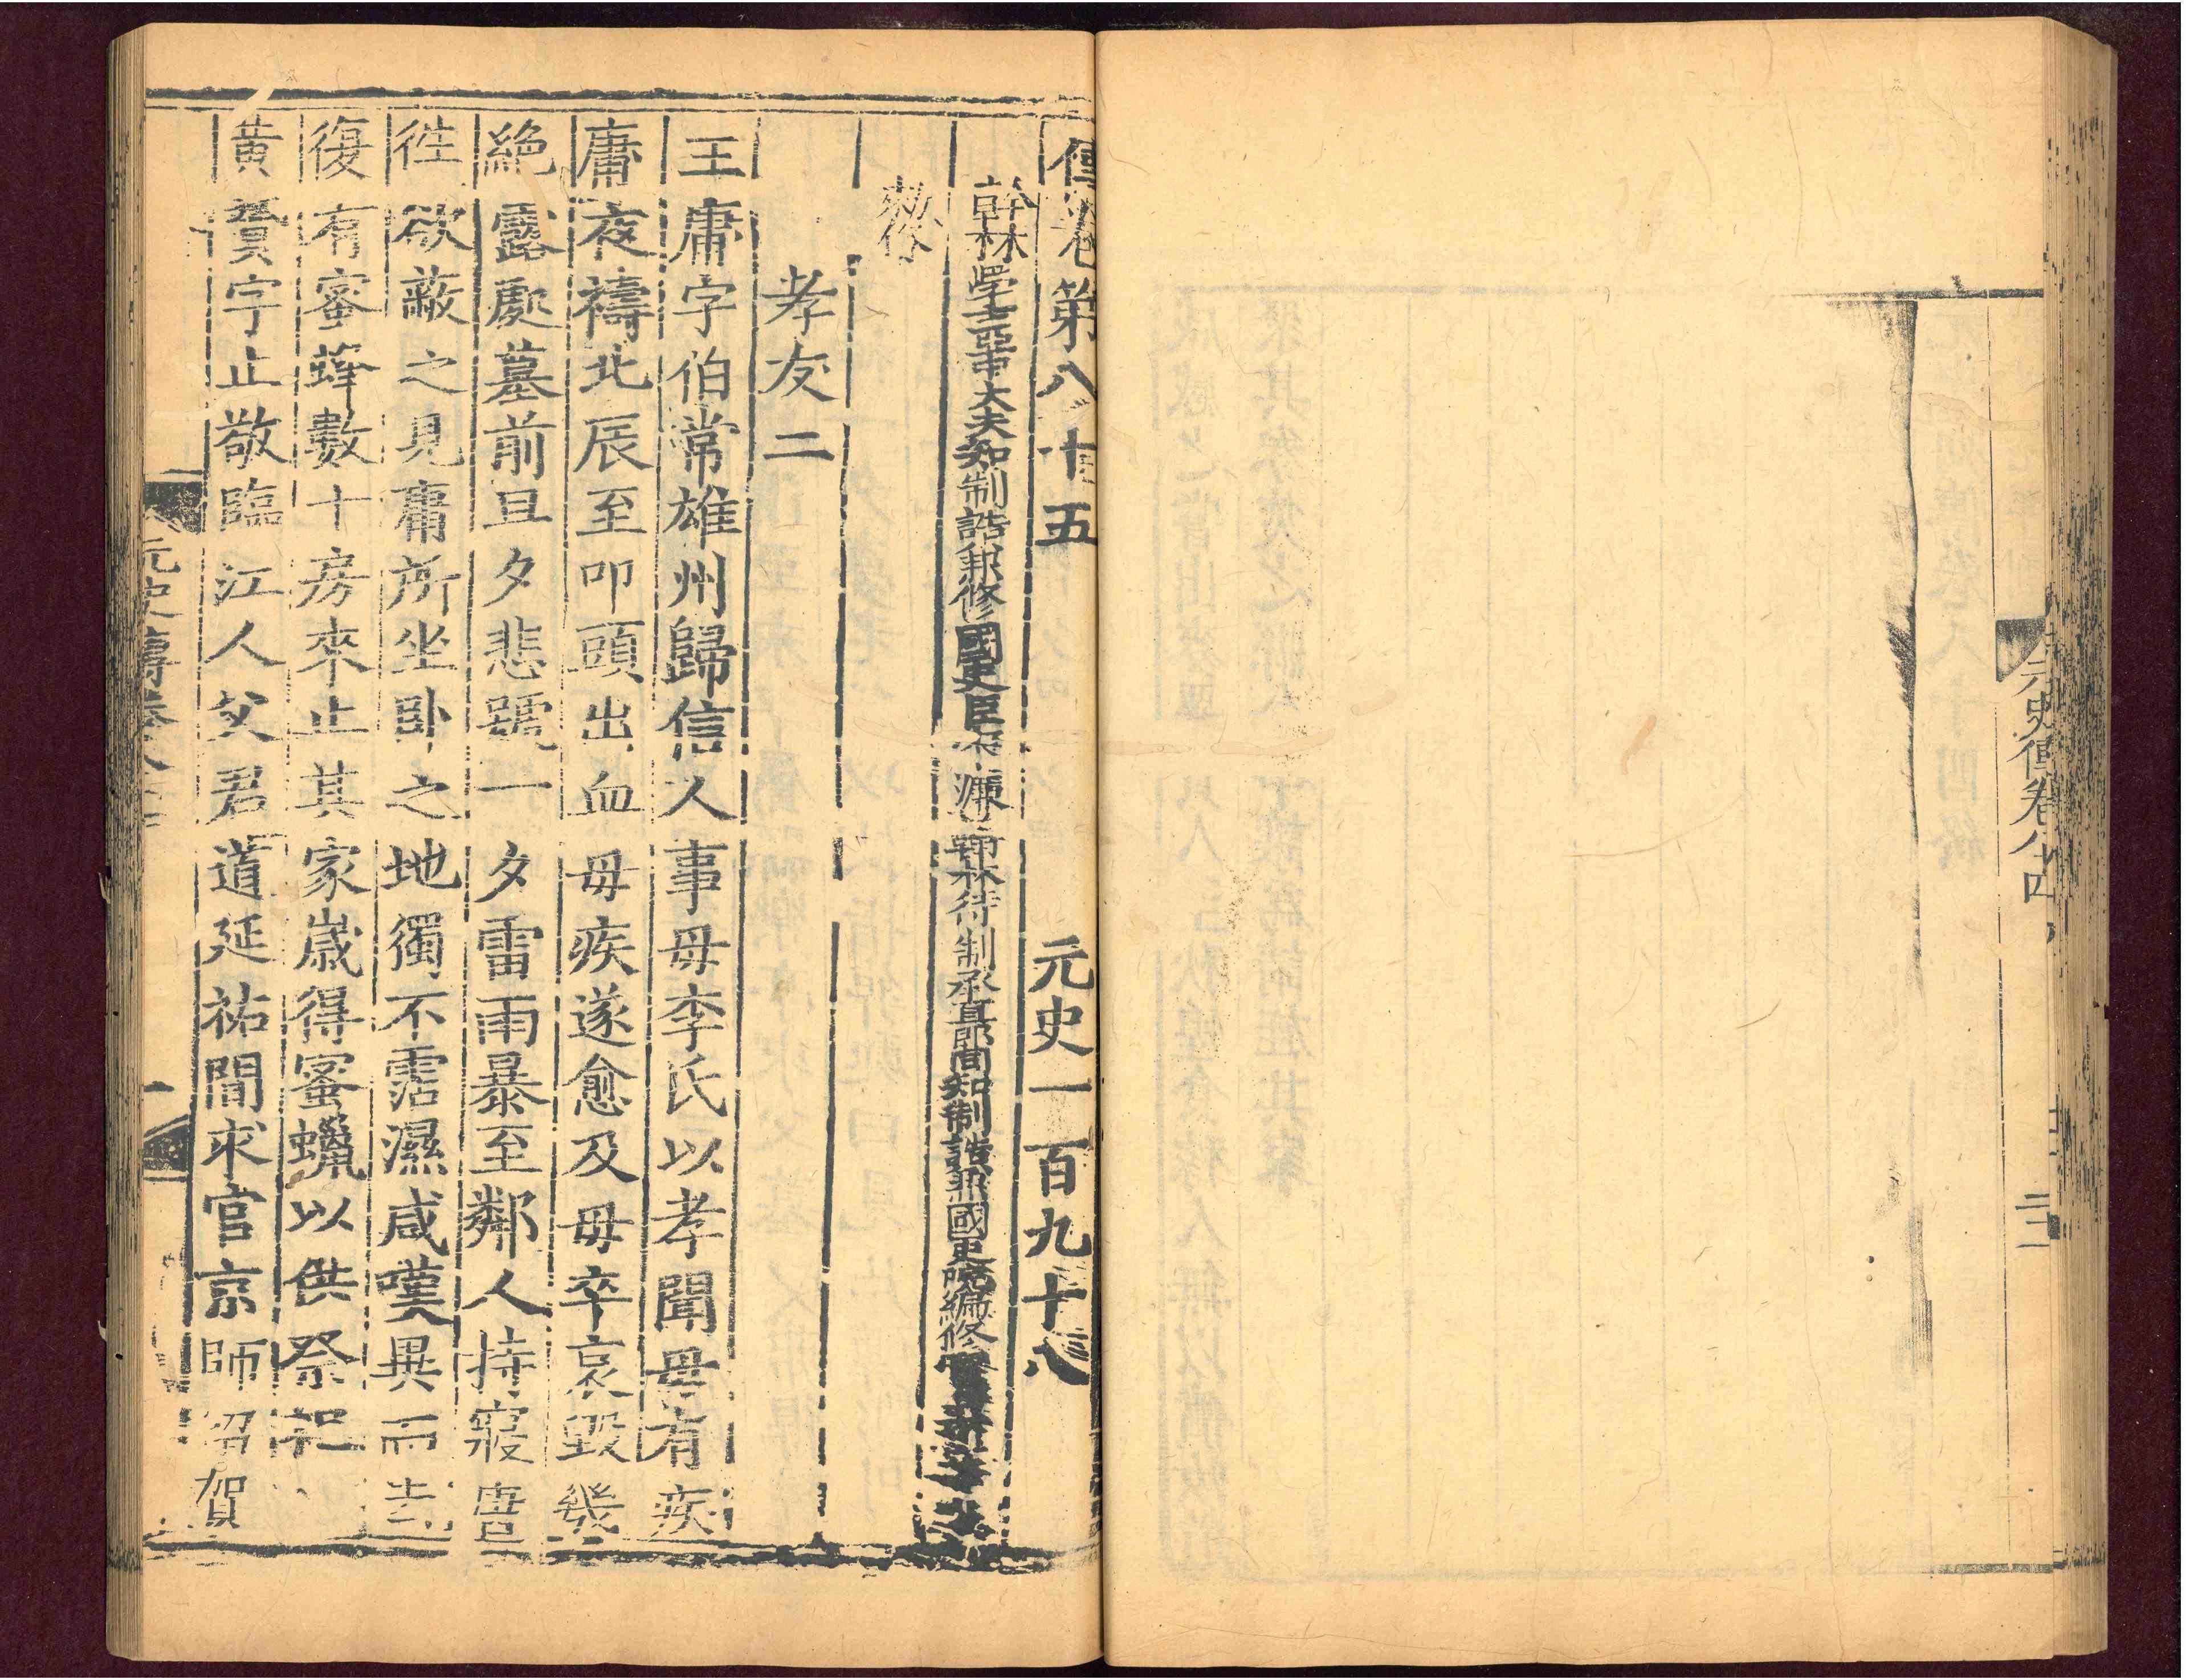 元史傳卷八十四
二十一
傳卷第八十五 元史一百九十八
翰林學士亞中大夫知制誥兼修國史臣宋濂 翰林待制承直郎同知制誥兼國史院編修
敕修
孝友二
王庸字伯常雄州歸信人事母李氏以孝聞母有疾
庸夜禱北辰至叩頭出血母疾遂愈及母卒哀毀幾
絶露處墓前旦夕悲號一夕雷雨暴至鄰人持寢席
徃欲蔽之見庸所坐臥之地獨不霑濕咸嘆異而去
復有蜜蜂數十房來止其家歲得蜜蠟以供祭祀
黄贇字止敬臨江人父君道延祐間求官京師留贇
元史傳卷八十五
一